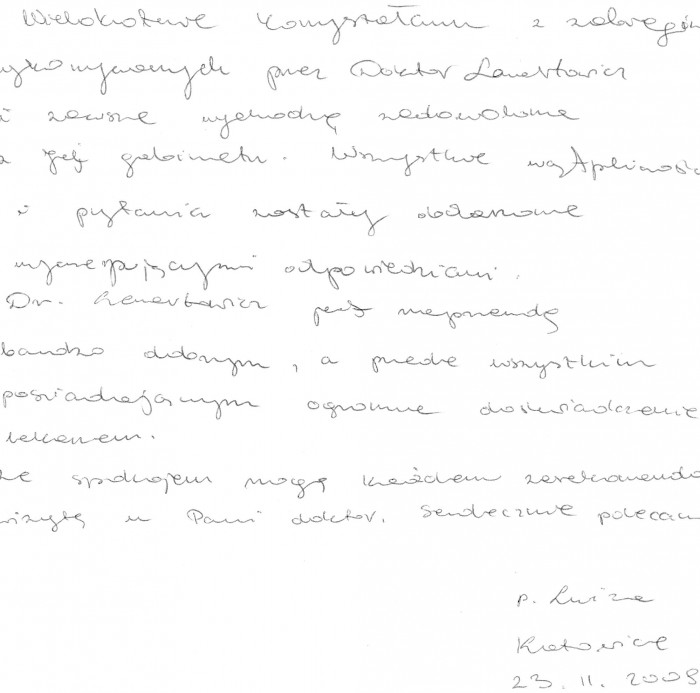 Wielokrotnie korzystałam z zabiegów
wykonywanych przez Doktor Lenartowicz
i zawsze wychodzę zadowolona
z jej gabinetu. Wszystkie wątpliwości
i pytania zostały obdarzone
wyczerpującymi odpowiedziami.
Dr. Lenartowicz jest naprawdę
bardzo dobrym, a przede wszystkim
posiadającym ogromne doświadczenie
lekarzem.
Ze spokojem mogę każdem
wizytę u Pani doktor. Serdecznie polecam
p. Luiza
Katowice
23.11.2009